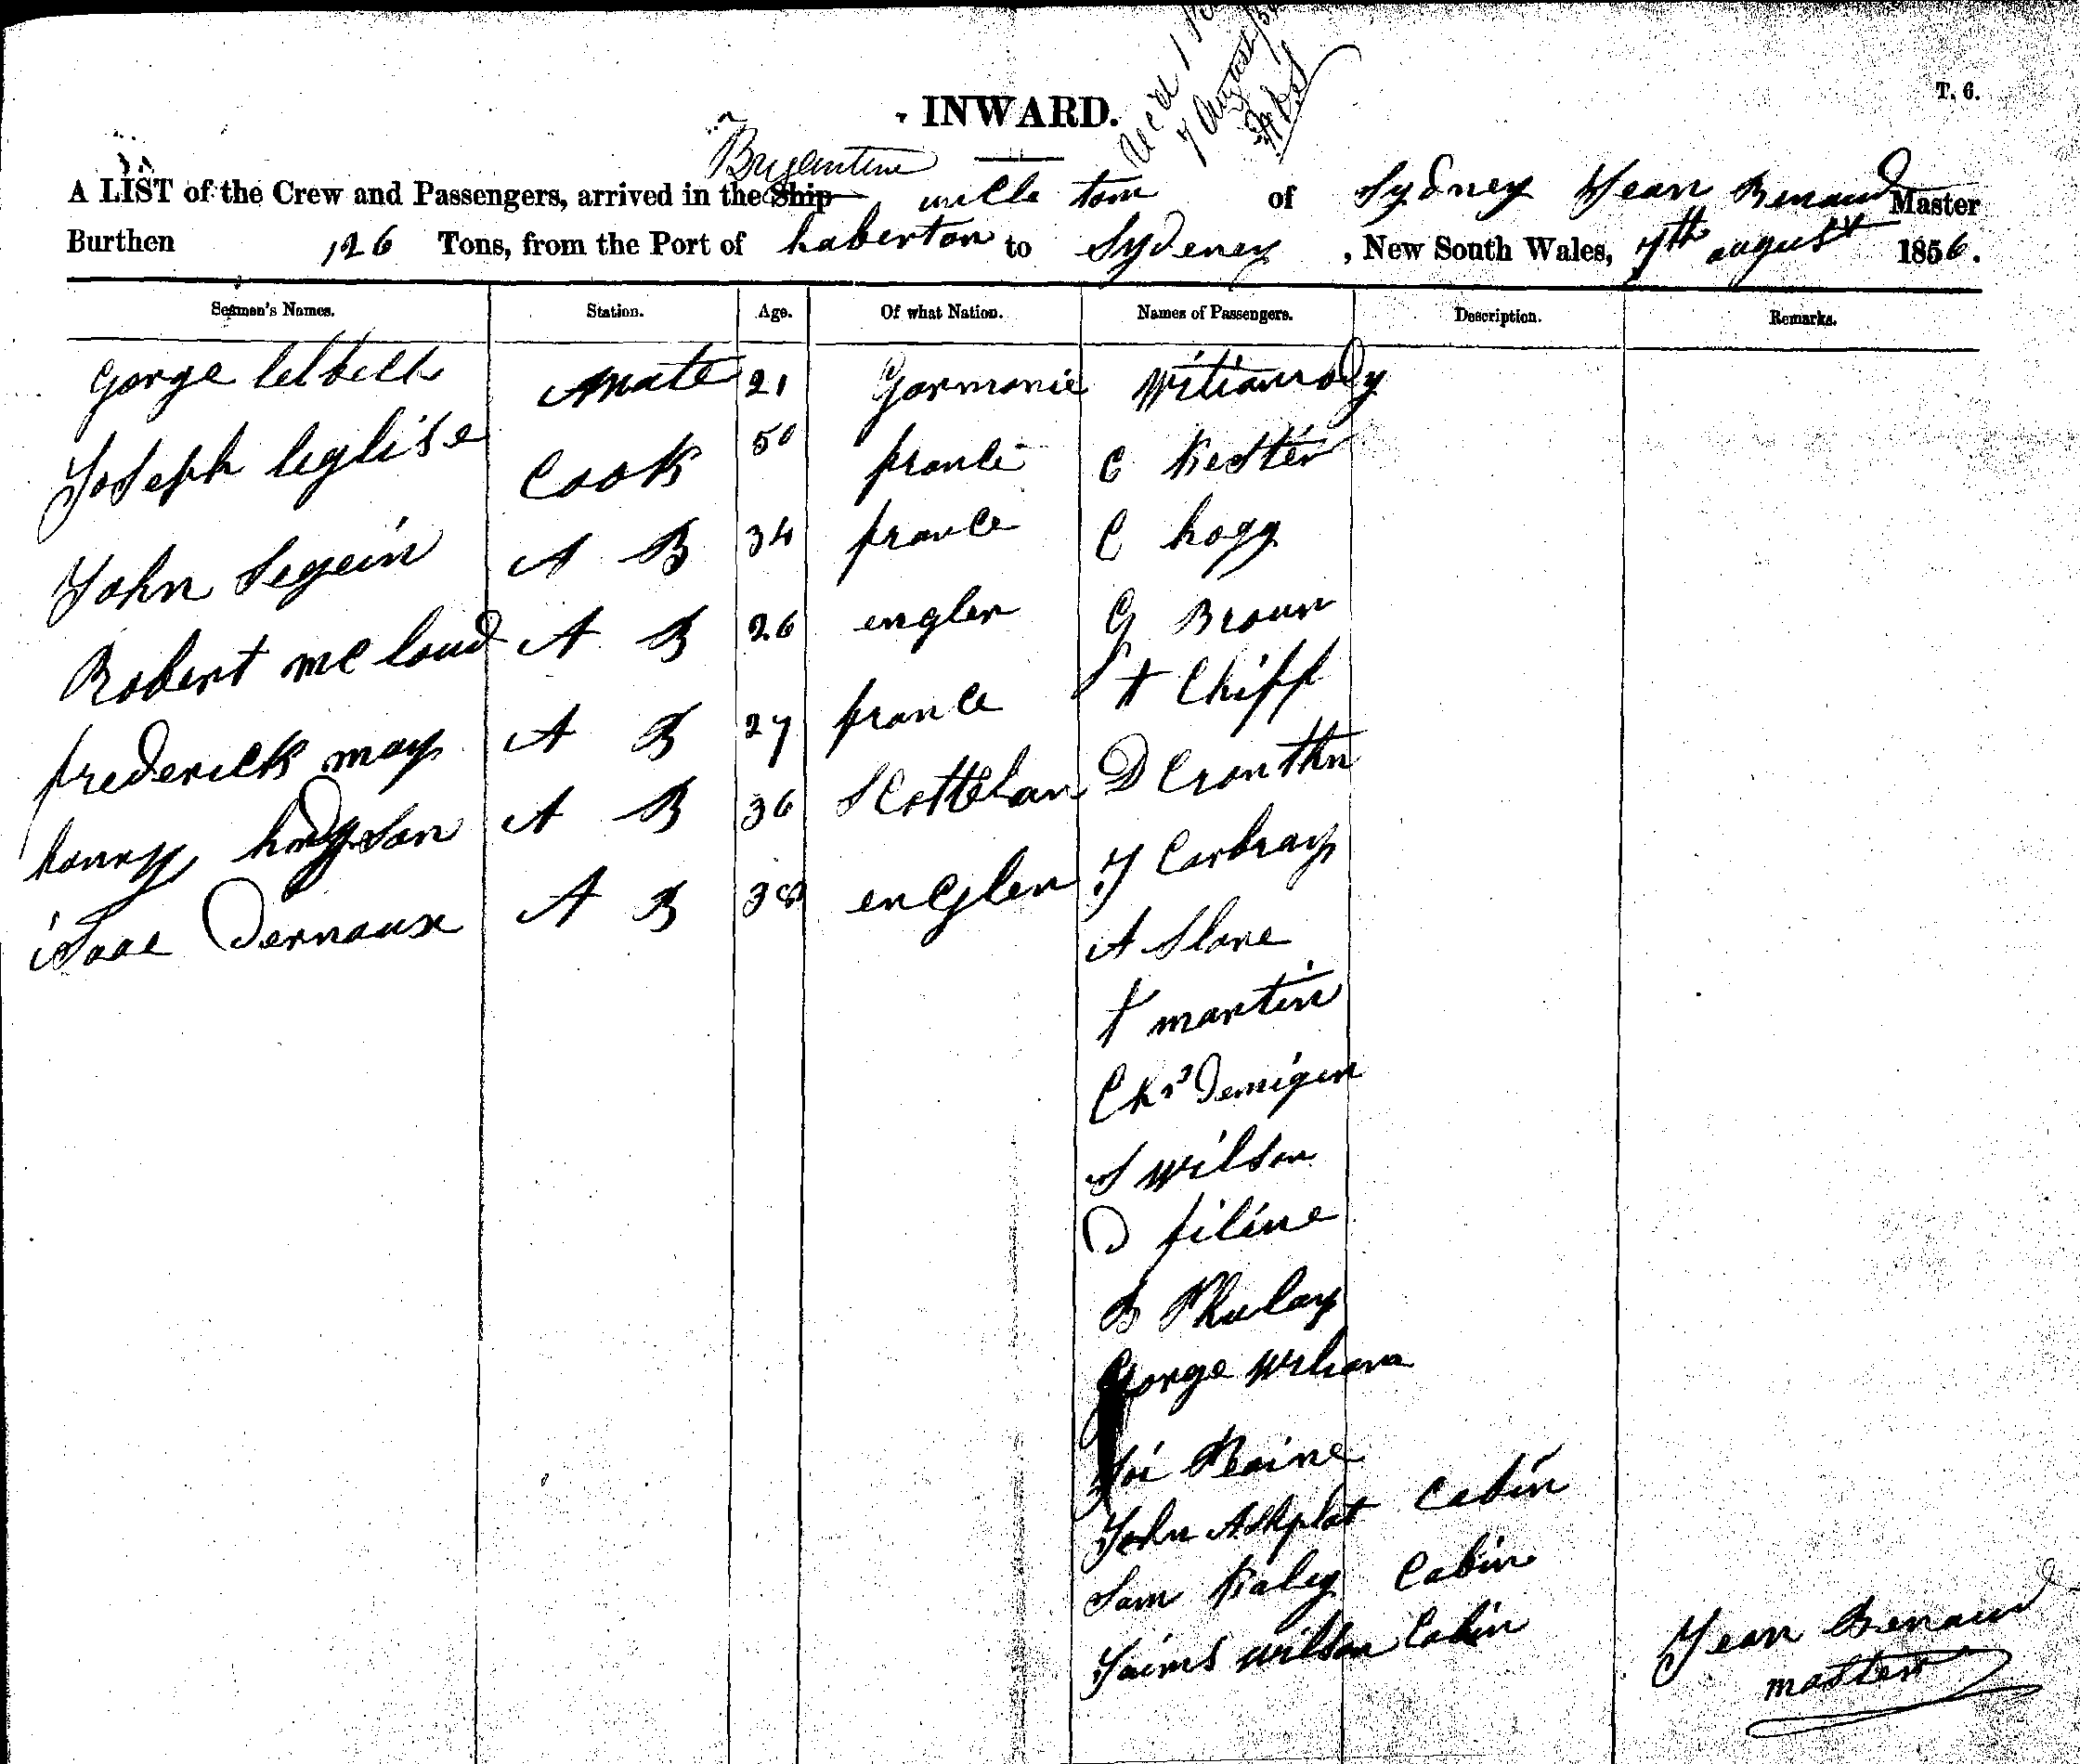 T. 6.
INWARD.
7 August
Brigantine
A LIST of the Crew and Passengers, arrived in the Ship uncle tom of Sydney Jean Renaud Master
Burthen 126 Tons, from the Port of haberton to Sydeney , New South Wales, 7th august 1856.
Seamen's Names. Station. Age. Of what Nation. Names of Passengers. Description. Remarks.
gorge mate 21 Germanie
Joseph leglise Cook 50 france C
John Segein A B 34 france C hogg
Robert mc loud A B 26 englen G Broun
frederick may A B 27 france Chiff
henry A B 36 Scottelan D
isaac Dernaux A B 38 englen J Carbray
A Slone
martin
Chs
S wilson
D filine
B
gorge
Raine
John Cabin
Sam Kaley Cabin
Jaims wilson Cabin
Jean Renaud
master